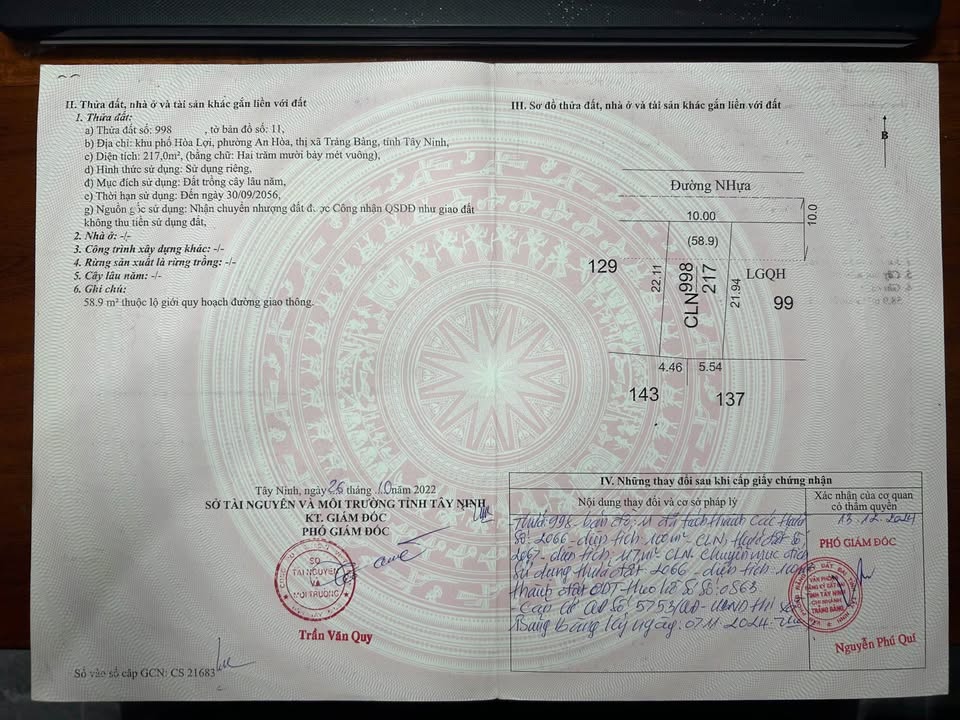 II. Thửa đất, nhà ở và tài sản khác gắn liền với đất
1. Thửa đất:
a) Thửa đất số: 998 , tờ bản đồ số: 11,
b) Địa chỉ: khu phố Hòa Lợi, phường An Hòa, thị xã Trảng Bàng, tỉnh Tây Ninh,
c) Diện tích: 217,0m², (bằng chữ: Hai trăm mười bảy mét vuông),
d) Hình thức sử dụng: Sử dụng riêng,
đ) Mục đích sử dụng: Đất trồng cây lâu năm,
e) Thời hạn sử dụng: Đến ngày 30/09/2056,
g) Nguồn gốc sử dụng: Nhận chuyển nhượng đất được Công nhận QSDĐ như giao đất
không thu tiền sử dụng đất,
2. Nhà ở: -/-
3. Công trình xây dựng khác: -/-
4. Rừng sản xuất là rừng trồng: -/-
5. Cây lâu năm: -/-
6. Ghi chú:
58.9 m² thuộc lộ giới quy hoạch đường giao thông.
Tây Ninh, ngày 26 tháng 10 năm 2022
SỞ TÀI NGUYÊN VÀ MÔI TRƯỜNG TỈNH TÂY NINH
KT. GIÁM ĐỐC
PHÓ GIÁM ĐỐC
SỞ
TÀI NGUYÊN
VÀ
MÔI TRƯỜNG
Trần Văn Quy
Số vào sổ cấp GCN: CS 21683
III. Sơ đồ thửa đất, nhà ở và tài sản khác gắn liền với đất
B
Đường NHựa
10.00
10.0
(58.9)
129
22.11
CLN 998
217
21.94
LGQH
99
4.46
5.54
143
137
IV. Những thay đổi sau khi cấp giấy chứng nhận
Nội dung thay đổi và cơ sở pháp lý
Xác nhận của cơ quan
có thẩm quyền
Thửa 998 bản đồ 11 đã tách thành các thửa
số 2066 - diện tích 100m² CLN, thửa đất số
2067 - diện tích 117m² CLN. Chuyển mục đích
sử dụng thửa đất 2066 - diện tích 100m²
thành đất ODT theo hồ sơ số: 0563
- Cấp QĐ số 5753/QĐ-UBND thị xã
Trảng Bàng ngày 07.11.2024
13.12.2024
PHÓ GIÁM ĐỐC
VĂN PHÒNG
ĐĂNG KÝ ĐẤT ĐAI
TỈNH TÂY NINH
CHI NHÁNH
TRẢNG BÀNG
Nguyễn Phú Quí